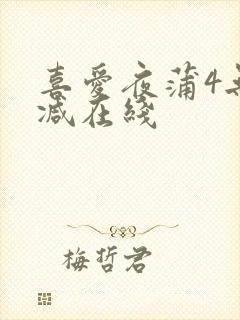 喜愛夜蒲4
減在綫
梅哲君